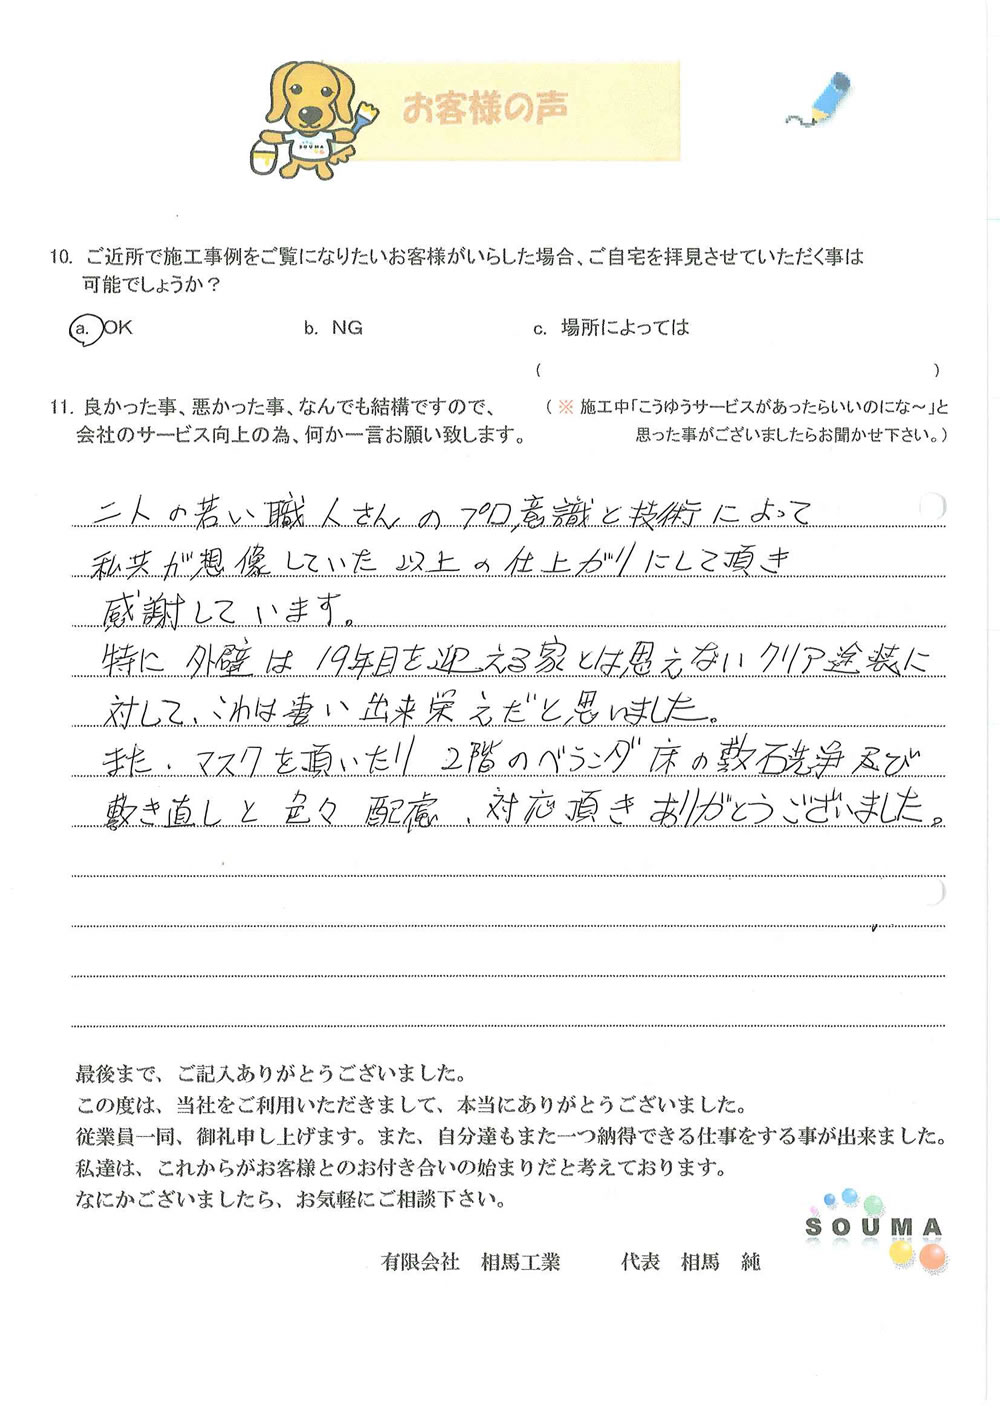 お客様の声
SOUMA
10. ご近所で施工事例をご覧になりたいお客様がいらした場合、ご自宅を拝見させていただく事は
可能でしょうか？
a. OK b. NG c. 場所によっては
( )
11. 良かった事、悪かった事、なんでも結構ですので、 (※ 施工中「こうゆうサービスがあったらいいのにな～」と
会社のサービス向上の為、何か一言お願い致します。 思った事がございましたらお聞かせ下さい。)
二人の若い職人さんのプロ意識と技術によって
私共が想像していた以上の仕上がりにして頂き
感謝しています。
特に外壁は19年目を迎える家とは思えないクリア塗装に
対して、これは凄い出来栄えだと思いました。
また、マスクを頂いたり 2階のベランダ床の敷石洗浄及び
敷き直しと色々配慮、対応頂きありがとうございました。
最後まで、ご記入ありがとうございました。
この度は、当社をご利用いただきまして、本当にありがとうございました。
従業員一同、御礼申し上げます。また、自分達もまた一つ納得できる仕事をする事が出来ました。
私達は、これからがお客様とのお付き合いの始まりだと考えております。
なにかございましたら、お気軽にご相談下さい。
SOUMA
有限会社 相馬工業 代表 相馬 純